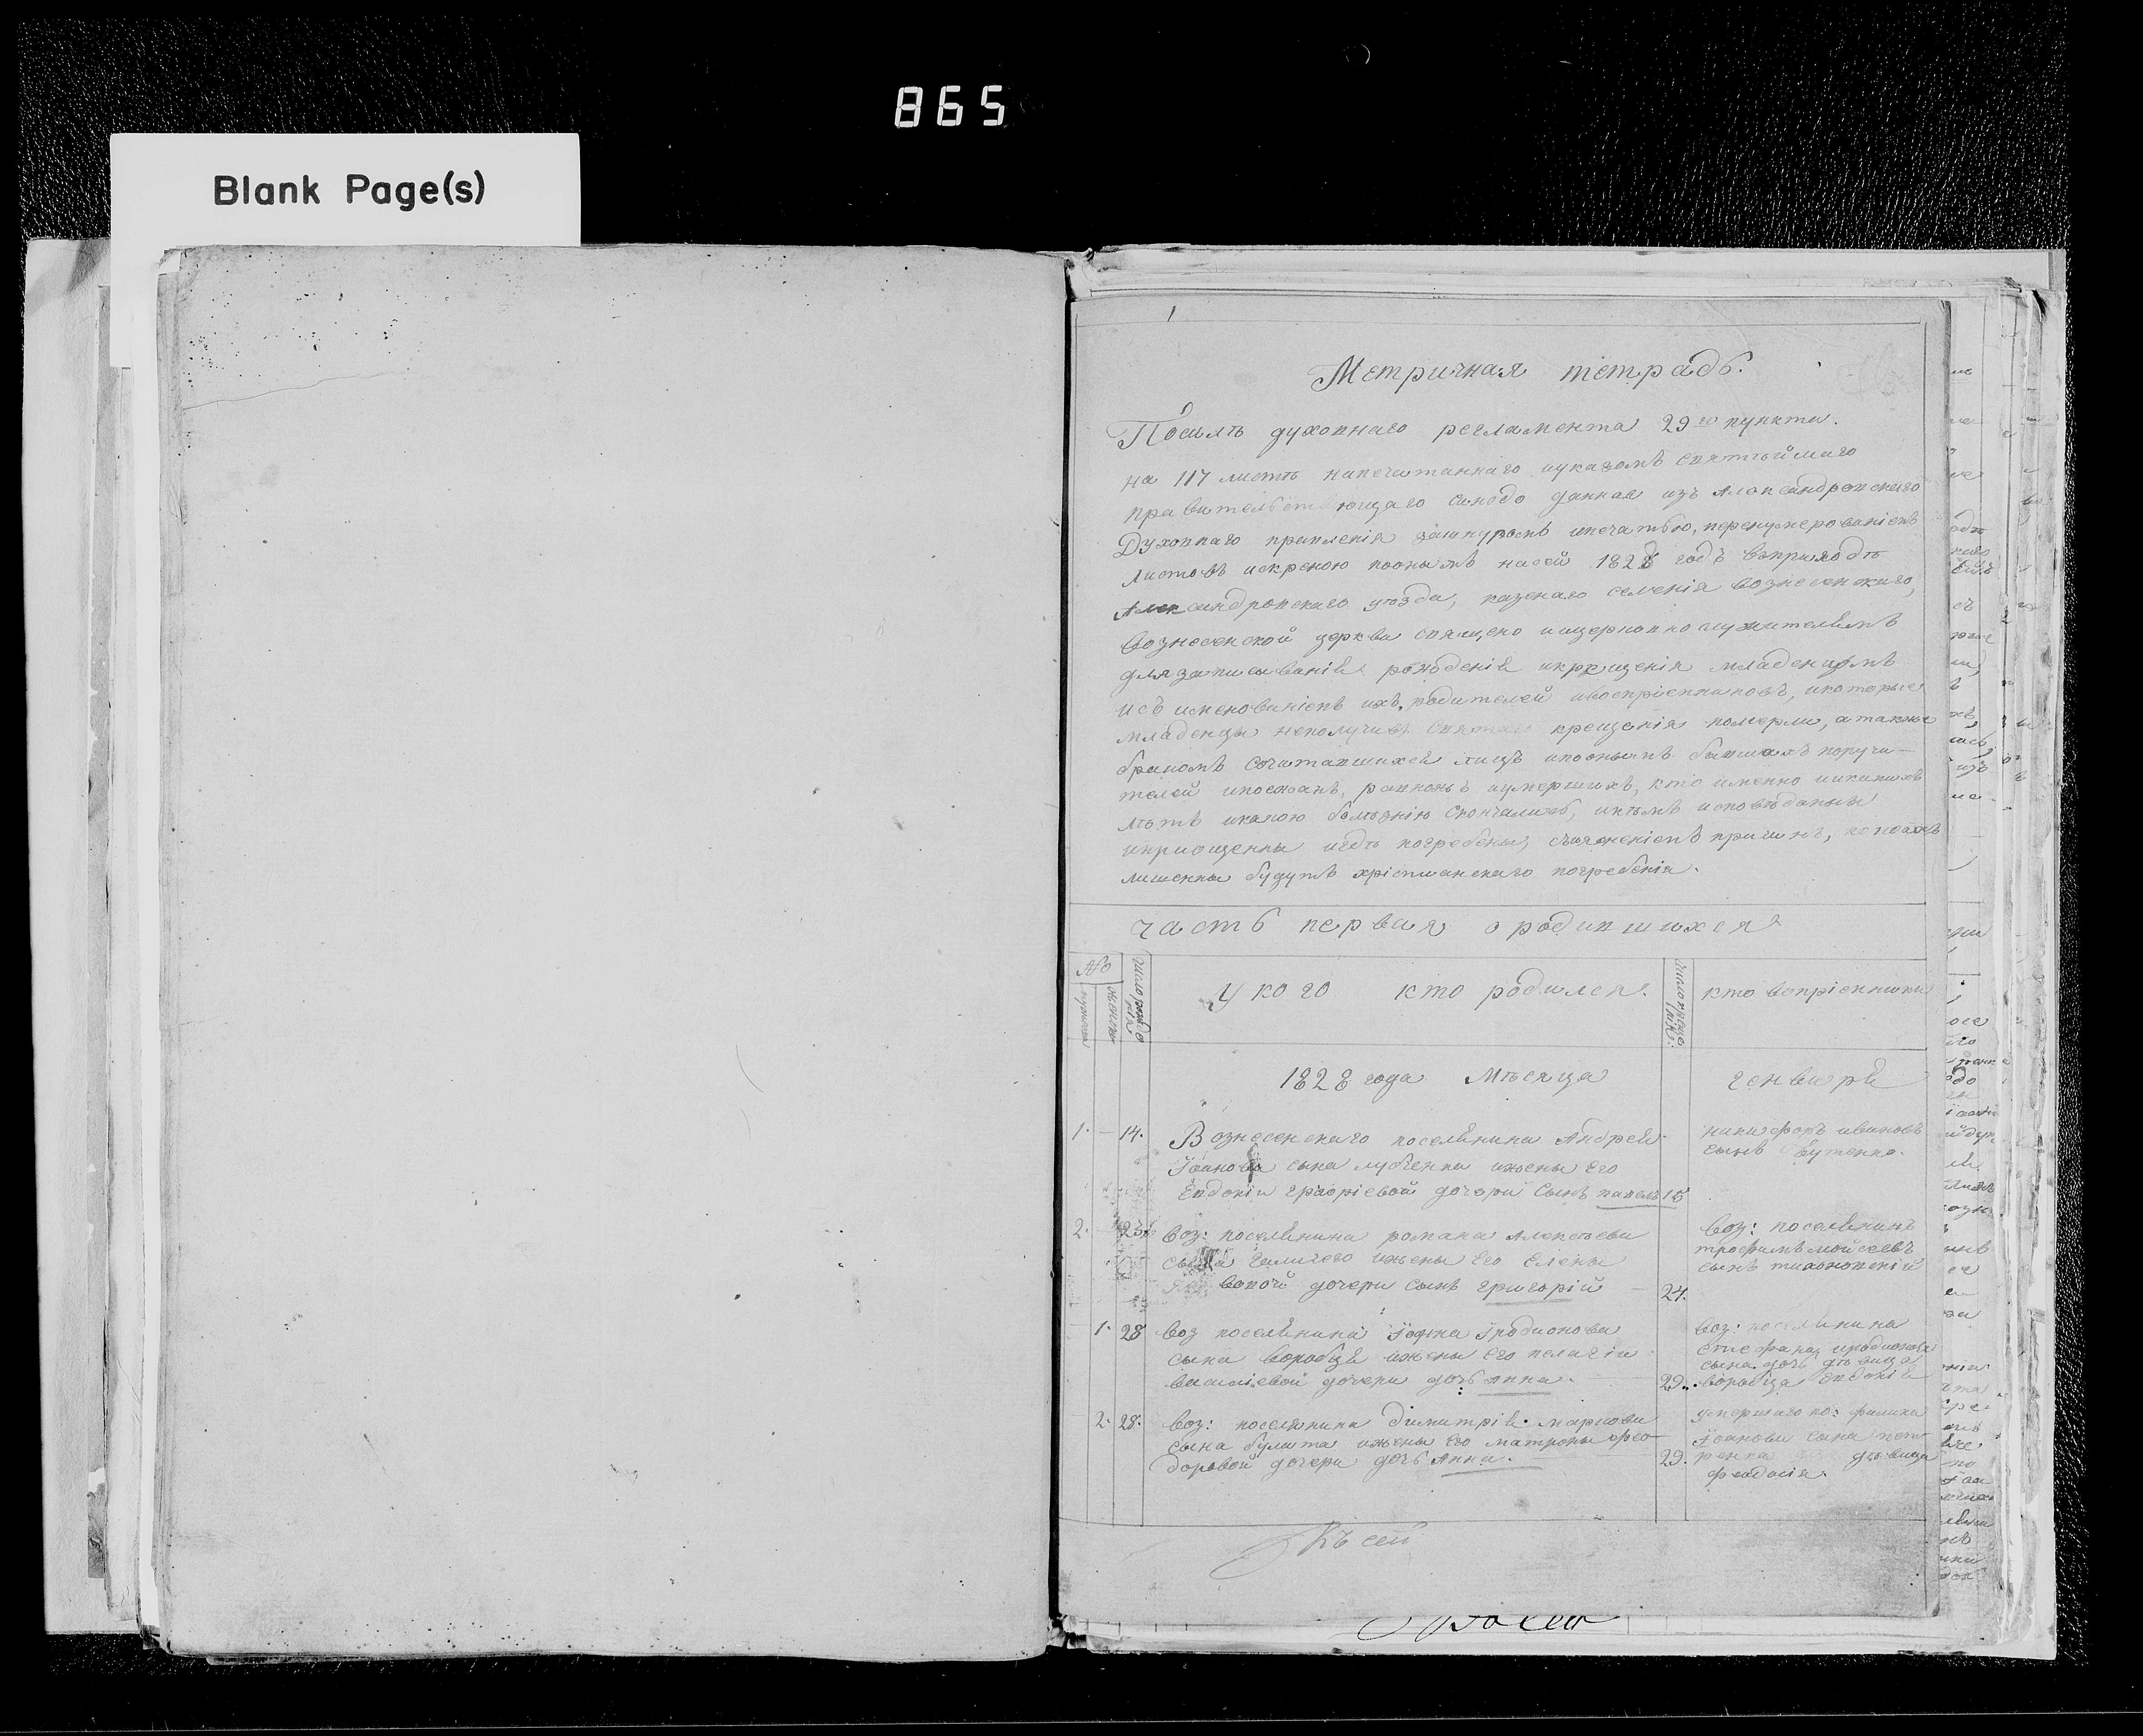 865
Blank Page(s)
1
Метричная тетрадь.
По силѣ духовнаго регламента 29го пункта.
на 117 листѣ напечатаннаго иуказомъ Святѣйшаго
правительствующаго Синода данная изъ Александровскаго
Духовнаго правленія зашнуромъ ипечатью, перенумерованіемъ
листовъ искрепою поонымъ насей 1828 годъ вприходъ
Александровскаго уѣзда, казенаго селенія вознесенскаго,
вознесенской церкви священо ицерковно служителямъ
для записыванія рожденія икрещенія младенцомъ
исъ именованіемъ ихъ, родителей ивоспріемниковъ, икоторые
младенцы неполучивъ Святаго крещенія померли, атакже
бракомъ сочитавшихся лицъ ипоонымъ бывшихъ поручи-
телей ипоезжанъ, равножъ иумершихъ, кто именно икакихъ
лѣтъ икакою болѣзнію скончались, икѣмъ исповѣданы
ипріощенны игдѣ погребены, съизясненіемъ причинъ, по коимъ
лишенны будутъ христианскаго погребенія.
часть первая о родившихся
№
число рожде
нія
мужеска
женска
У кого кто родился.
число креще
нія:
кто воспріемники
1828 года Мѣсяца
генваря
1. — 14. Вознесенскаго поселянина Андрея
Іоанова сына лубченка ижены Его
Евдокіи григоріевой дочери Сынъ павелъ 15
никифоръ ивановъ
сынъ бутенко.
2. 23. воз: поселянина романа Алексѣева
сына галичего ижены Его Елены
вовой дочери сынъ григорій — 24.
воз: поселянинъ
трофимъ мойсеевъ
сынъ тихоновскій
1. 28 воз поселянина Іродіонова
сына воробца ижены Его пелагіи
василіевой дочери дочь Анна. 29.
воз: поселянина
стефана иродионова
сына дочь дѣвица
воробца Евдокія
2. 28. воз: поселянина димитрія маркова
сына булата ижены Его матроны фео-
доровой дочери дочь Анна. 29.
умершаго по: филипа
Іоанова сына
дѣвица
феодосія.
Къ сей